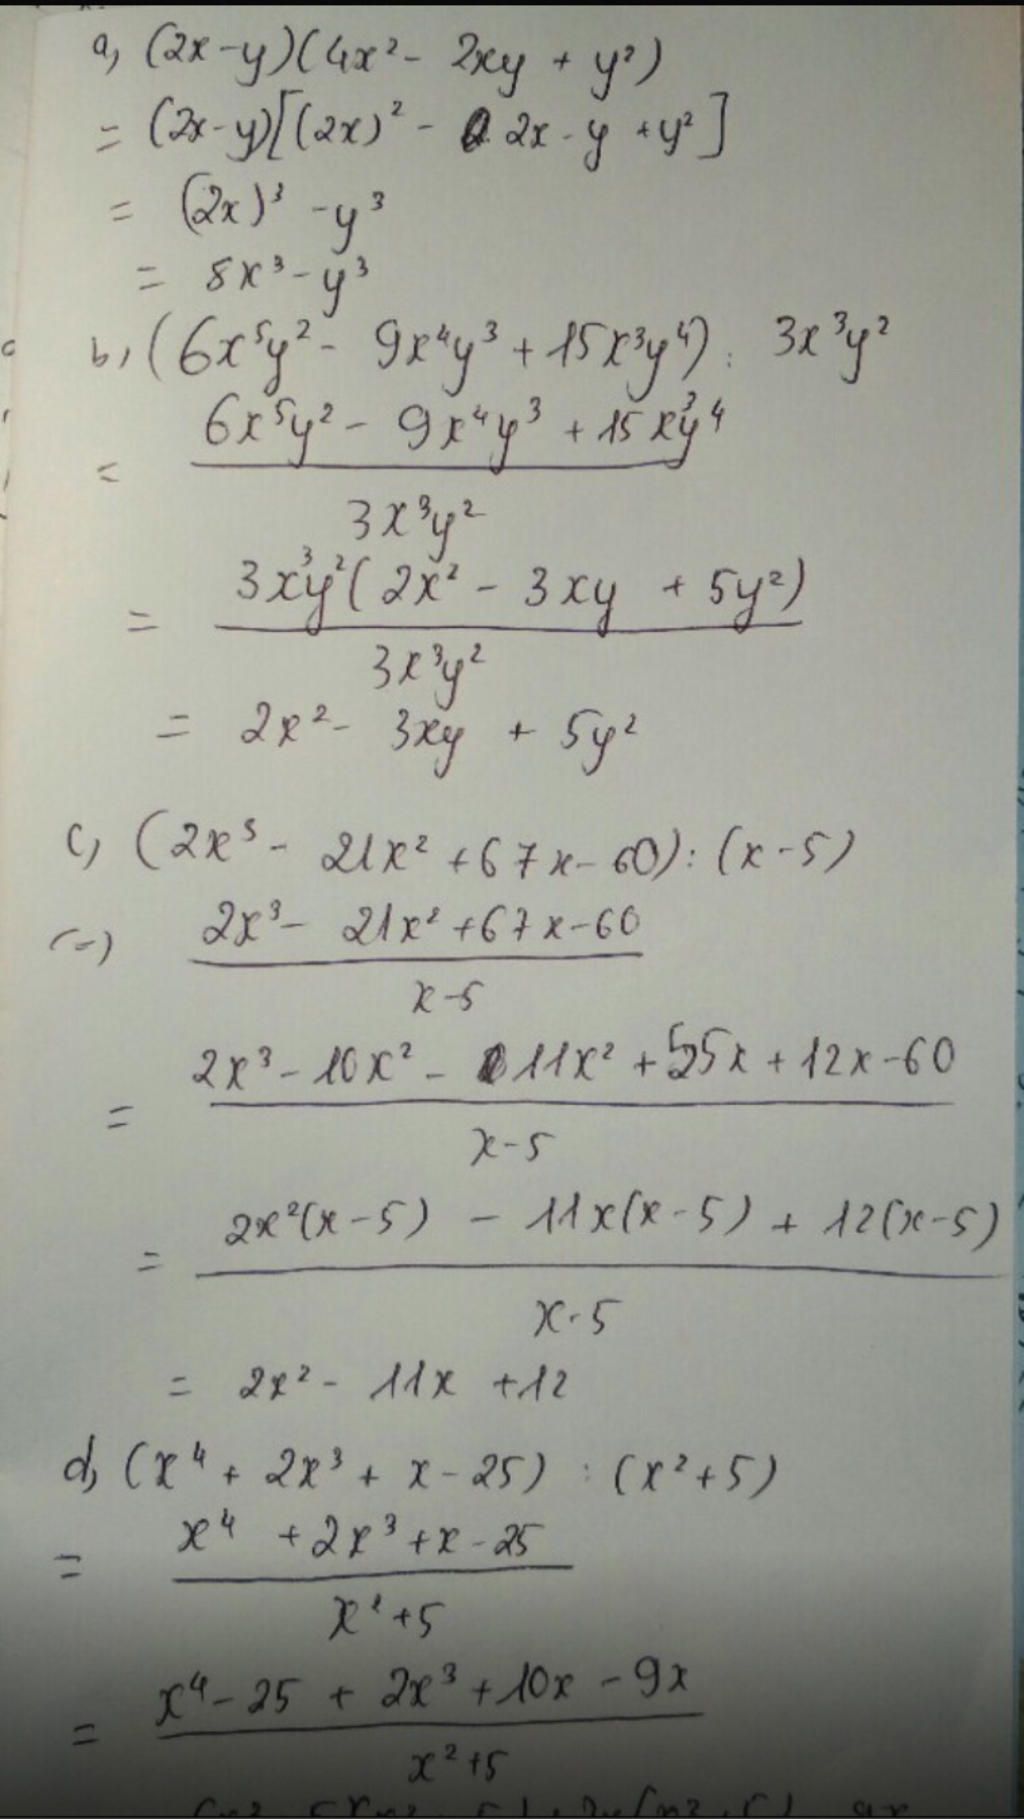 a, (2x-y)(4x² - 2xy + y²)
= (2x-y)[(2x)² - 2x - y + y²]
= (2x)³ - y³
= 8x³ - y³
b, (6x⁵y² - 9x⁴y³ + 15x³y⁴) : 3x³y²
= (6x⁵y² - 9x⁴y³ + 15x³y⁴) / (3x³y²)
= 3x³y²(2x² - 3xy + 5y²) / (3x³y²)
= 2x² - 3xy + 5y²
c, (2x³ - 21x² + 67x - 60) : (x-5)
(=) (2x³ - 21x² + 67x - 60) / (x-5)
= (2x³ - 10x² - 11x² + 55x + 12x - 60) / (x-5)
= (2x²(x-5) - 11x(x-5) + 12(x-5)) / (x-5)
= 2x² - 11x + 12
d, (x⁴ + 2x³ + x - 25) : (x² + 5)
= (x⁴ + 2x³ + x - 25) / (x² + 5)
= (x⁴ - 25 + 2x³ + 10x - 9x) / (x² + 5)